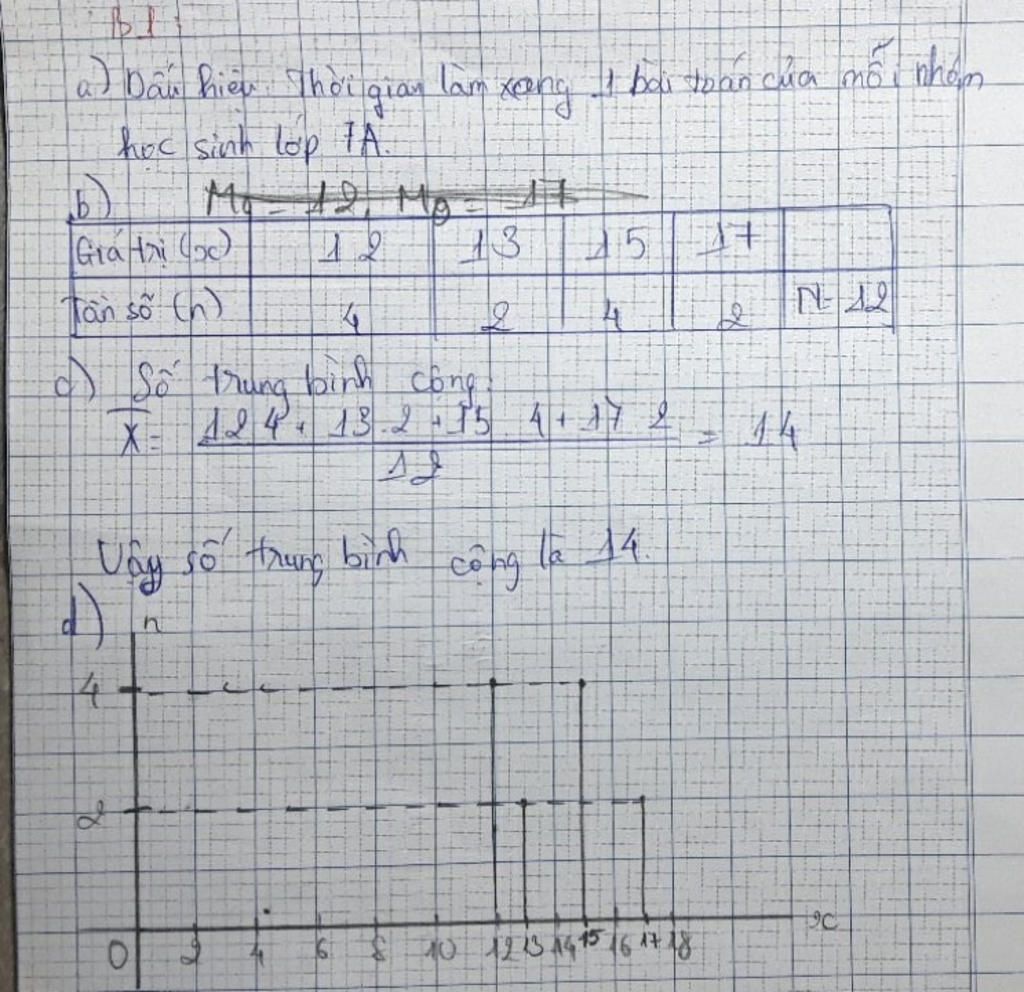 B1:
a) Dấu hiệu: Thời gian làm xong 1 bài toán của mỗi nhóm
học sinh lớp 7A.
b) M0 = 12, M0 = 17
Giá trị (x) 12 13 15 17
Tần số (n) 4 2 4 2 N= 12
c) Số trung bình cộng:
X = 12.4 + 13.2 + 15.4 + 17.2 = 14
12
Vậy số trung bình cộng là 14.
d) n
4
2
0 2 4 6 8 10 12 13 14 15 16 17 18 x